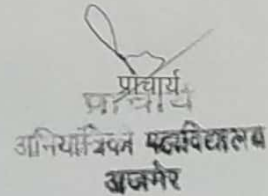 प्राचार्य
प्राचार्य
अभियांत्रिकी महाविद्यालय
अजमेर